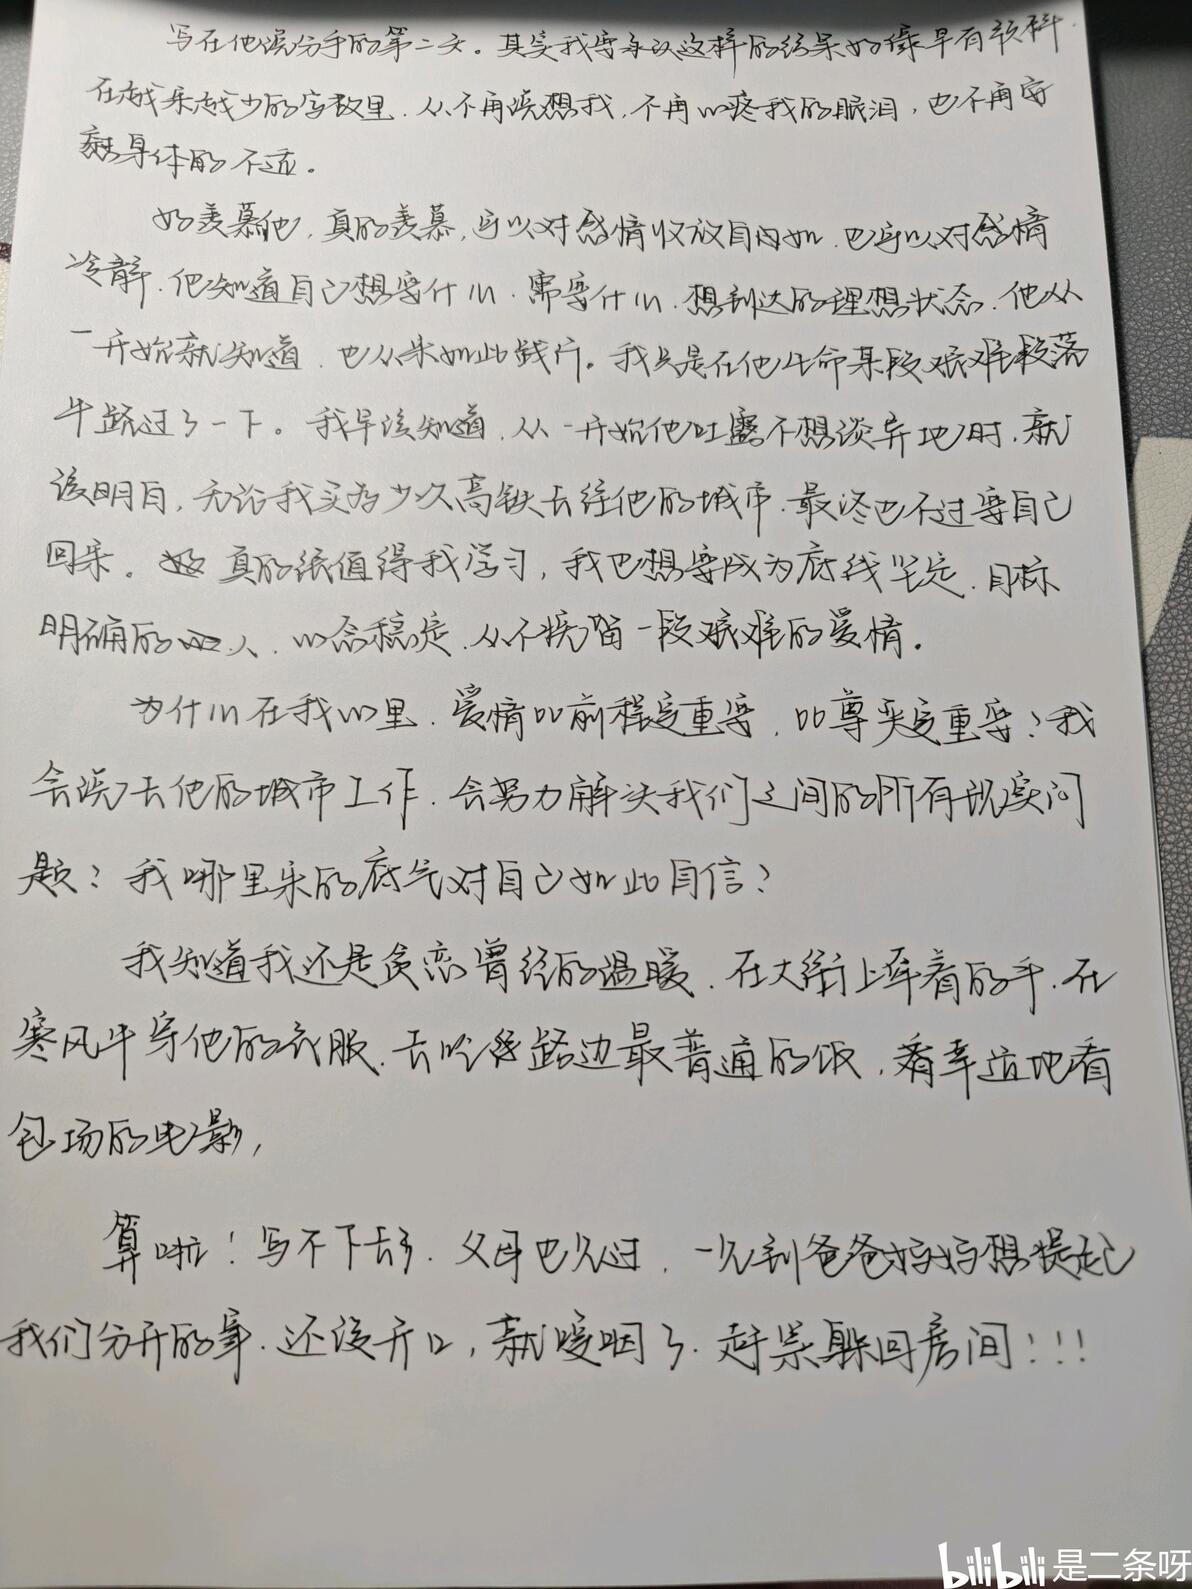 写在他说分手的第二天。其实我要承认这样的结果好像早有预料.
在越来越少的字数里.从不再说想我,不再心疼我的眼泪,也不再安
慰身体的不适。
好羡慕他,真的羡慕,可以对感情收放自如.也可以对感情
冷静.他知道自己想要什么.需要什么.想到达的理想状态.他从
一开始就知道.也从来如此践行。我只是在他生命某段艰难段落
中路过了一下。我早该知道.从一开始他吐露不想谈异地时.就
该明白,无论我买多少次高铁去往他的城市.最终也不过要自己
回来。真的很值得我学习,我也想要成为底线坚定.目标
明确的人.心态稳定.从不挽留一段艰难的爱情。
为什么在我心里.爱情比前程更重要.比尊严更重要?我
会说去他的城市工作.会努力解决我们之间的所有现实问
题?我哪里来的底气对自己如此自信?
我知道我还是贪恋曾经的温暖.在大街上牵着的手.在
寒风中穿他的衣服.去吃路边最普通的饭,看幸运地看
包场的电影,
算啦!写不下去了.父母也见过.一见到爸爸妈妈想提起
我们分开的事.还没开口,就哽咽了.赶紧躲回房间!!!
bilibili 是二条呀